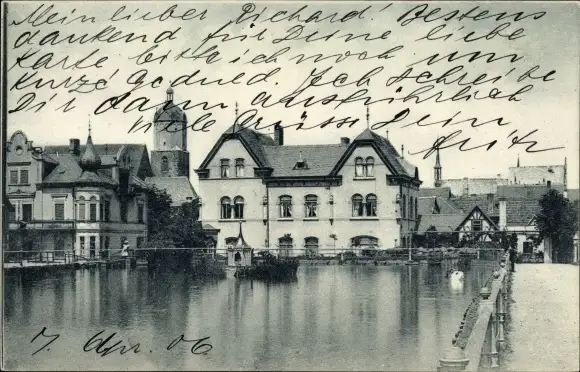 Mein lieber Richard! Bestens
dankend für Deine liebe
Karte bitte ich noch um
kurze Geduld. Ich schreibe
Dir dann ausführlich
viele Grüsse Dein
Fritz
7. Apr. 06